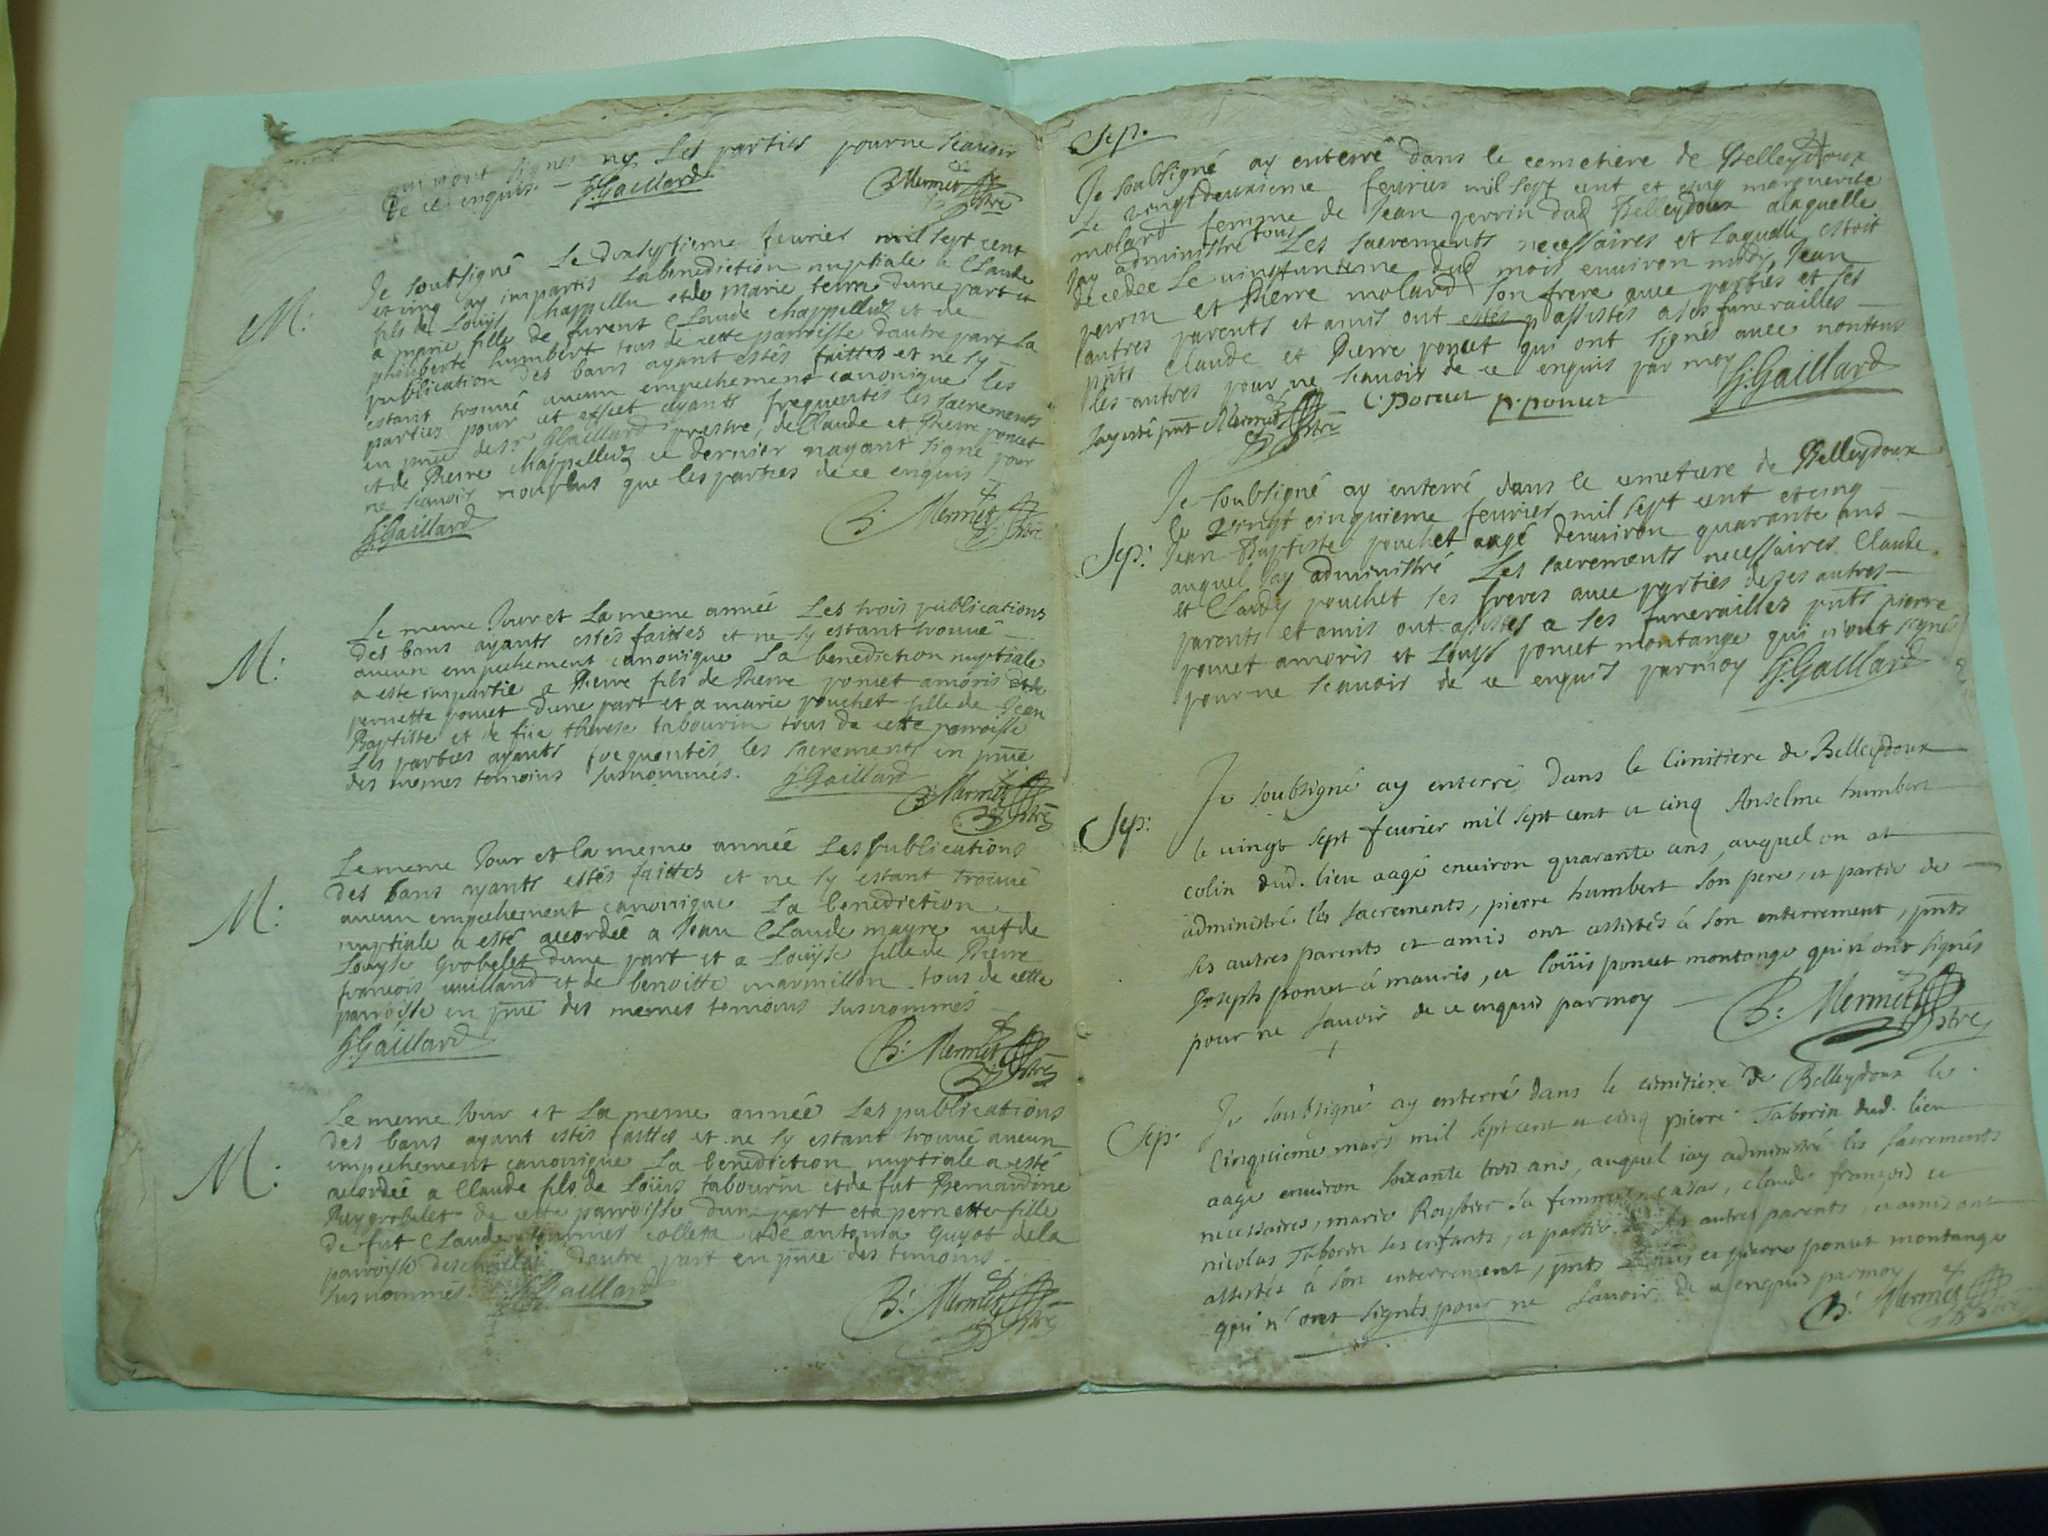 qui n'ont signés ny les parties pour ne scavoir
de ce enquis. G: Gaillard B: Mermet Ptre
M:
Je soubsigné le dixseptieme feurier mil sept cent
et cinq ay impartis la benediction nuptiale a Claude
fils de Louys Chappelluz et de marie dune part et
a marie fille de furent Claude Chappelluz et de
philiberte humbert tous de cette parroisse dautre part la
publication des bans ayant estés faittes et ne sy
estant trouué aucun empechement canonique les
parties pour cet effect ayants frequentés les sacrements
en pnce de Sr Gaillard prestre, de Claude et Pierre poncet
et de Pierre Chappelluz ce dernier nayant signé pour
ne scauoir nonplus que les parties de ce enquis
G: Gaillard B: Mermet Ptre
M:
Le meme Jour et La meme année Les trois publications
des bans ayants estés faittes et ne sy estant trouué
aucun empechement canonique La benediction nuptiale
a esté impartie a Pierre fils de Pierre poncet amoris et de
pernette poncet dune part et a marie pouchet fille de Jean
Baptiste et de füe therese tabourin tous de cette parroisse
Les parties ayants frequentés les sacrements en pnce
des memes temoins susnommés. G: Gaillard
B: Mermet Ptre
M:
Le meme Jour et la meme année Les publications
des bans ayants estés faittes et ne sy estant trouué
aucun empechement canonique La benediction
nuptiale a esté accordée a Jean Claude mayre uef de
Louyse Grobelet dune part et a Louyse fille de Pierre
francois uuilland et de benoitte marmillon tous de cette
parroisse en pnce des memes temoins susnommés
G: Gaillard B: Mermet Ptre
M:
Le meme Jour et La meme année Les publications
des bans ayant estés faittes et ne sy estant trouué aucun
empechement canonique La benediction nuptiale a esté
accordée a Claude fils de Loüis tabourin et de fut Bernardine
Puygrobelet de cette parroisse dune part et a pernette fille
de fut Claude colleta et de antonia Guyot de la
parroisse dautre part en pnce des temoins
susnommés. G: Gaillard
B: Mermet Ptre
Sep.
Je soubsigné ay enterré dans le cemetiere de Belleydoux
Le vingtdeuxieme feurier mil sept cent et cinq marguerite
molard femme de Jean perrin dud Belleydoux a laquelle
Jay administré tous Les sacrements necessaires et laquelle estoit
decedée Le vingtunieme dud mois enuiron midy, Jean
perrin et Pierre molard son frere auec parties et ses
autres parents et amis ont estés assistés a ses funerailles
pnts Claude et Pierre poncet qui ont signés auec non tous
les autres pour ne scauoir de ce enquis par moy G: Gaillard
Jay esté pnt B: Mermet Ptre C: Poncet p: poncet
Sep:
Je soubsigné ay enterré dans le cemetiere de Belleydoux
le vingt cinquieme feurier mil sept cent et cinq
Jean Baptiste pouchet aagé denuiron quarante ans
auquel Jay administré Les sacrements necessaires Claude
et Claudy pouchet ses freres auec parties de ses autres
parents et amis ont assistés a ses funerailles pnts pierre
poncet amoris et Louys poncet montange qui n'ont signés
pour ne scauoir de ce enquis par moy G: Gaillard
Sep:
Je soubsigné ay enterré dans le Cimitiere de Belleydoux
le vingt sept feurier mil sept cent et cinq Anselme humbert
colin dud. lieu aagé enuiron quarante ans, auquel on at
administré les sacrements, pierre humbert son pere, et partie de
ses autres parents et amis ont assistés à son enterrement, pnts
Joseph poncet à mauris, et loüis poncet montange qui n'ont signés
pour ne sauoir de ce enquis par moy
B: Mermet Ptre
Sep:
Je soubsigné ay enterré dans le cimitiere de Belleydoux le
Cinquieme mars mil sept cent et cinq pierre Taborin dud. lieu
aagé enuiron soixante trois ans, auquel iay administré les sacrements
necessaires, marie Roybier sa femme claude françois et
nicolas Taborin ses enfants, et partie de ses autres parents, et amis ont
assistés à son enterrement, pnts Loüis et pierre poncet montange
qui n'ont signés pour ne sauoir de ce enquis par moy
B: Mermet Ptre